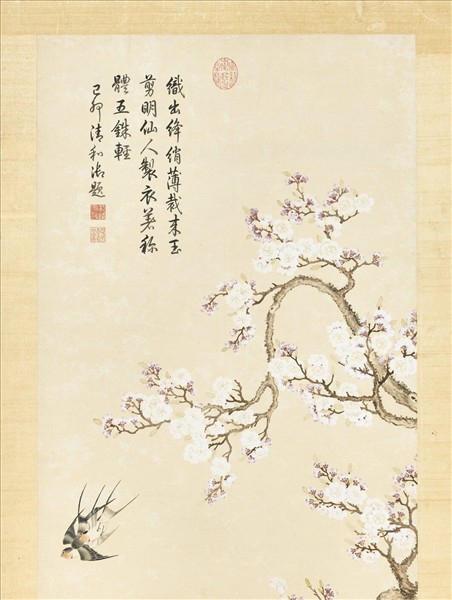 織出絳綃薄裁來玉
剪明仙人製衣著稱
體五銖輕
己卯清和御題